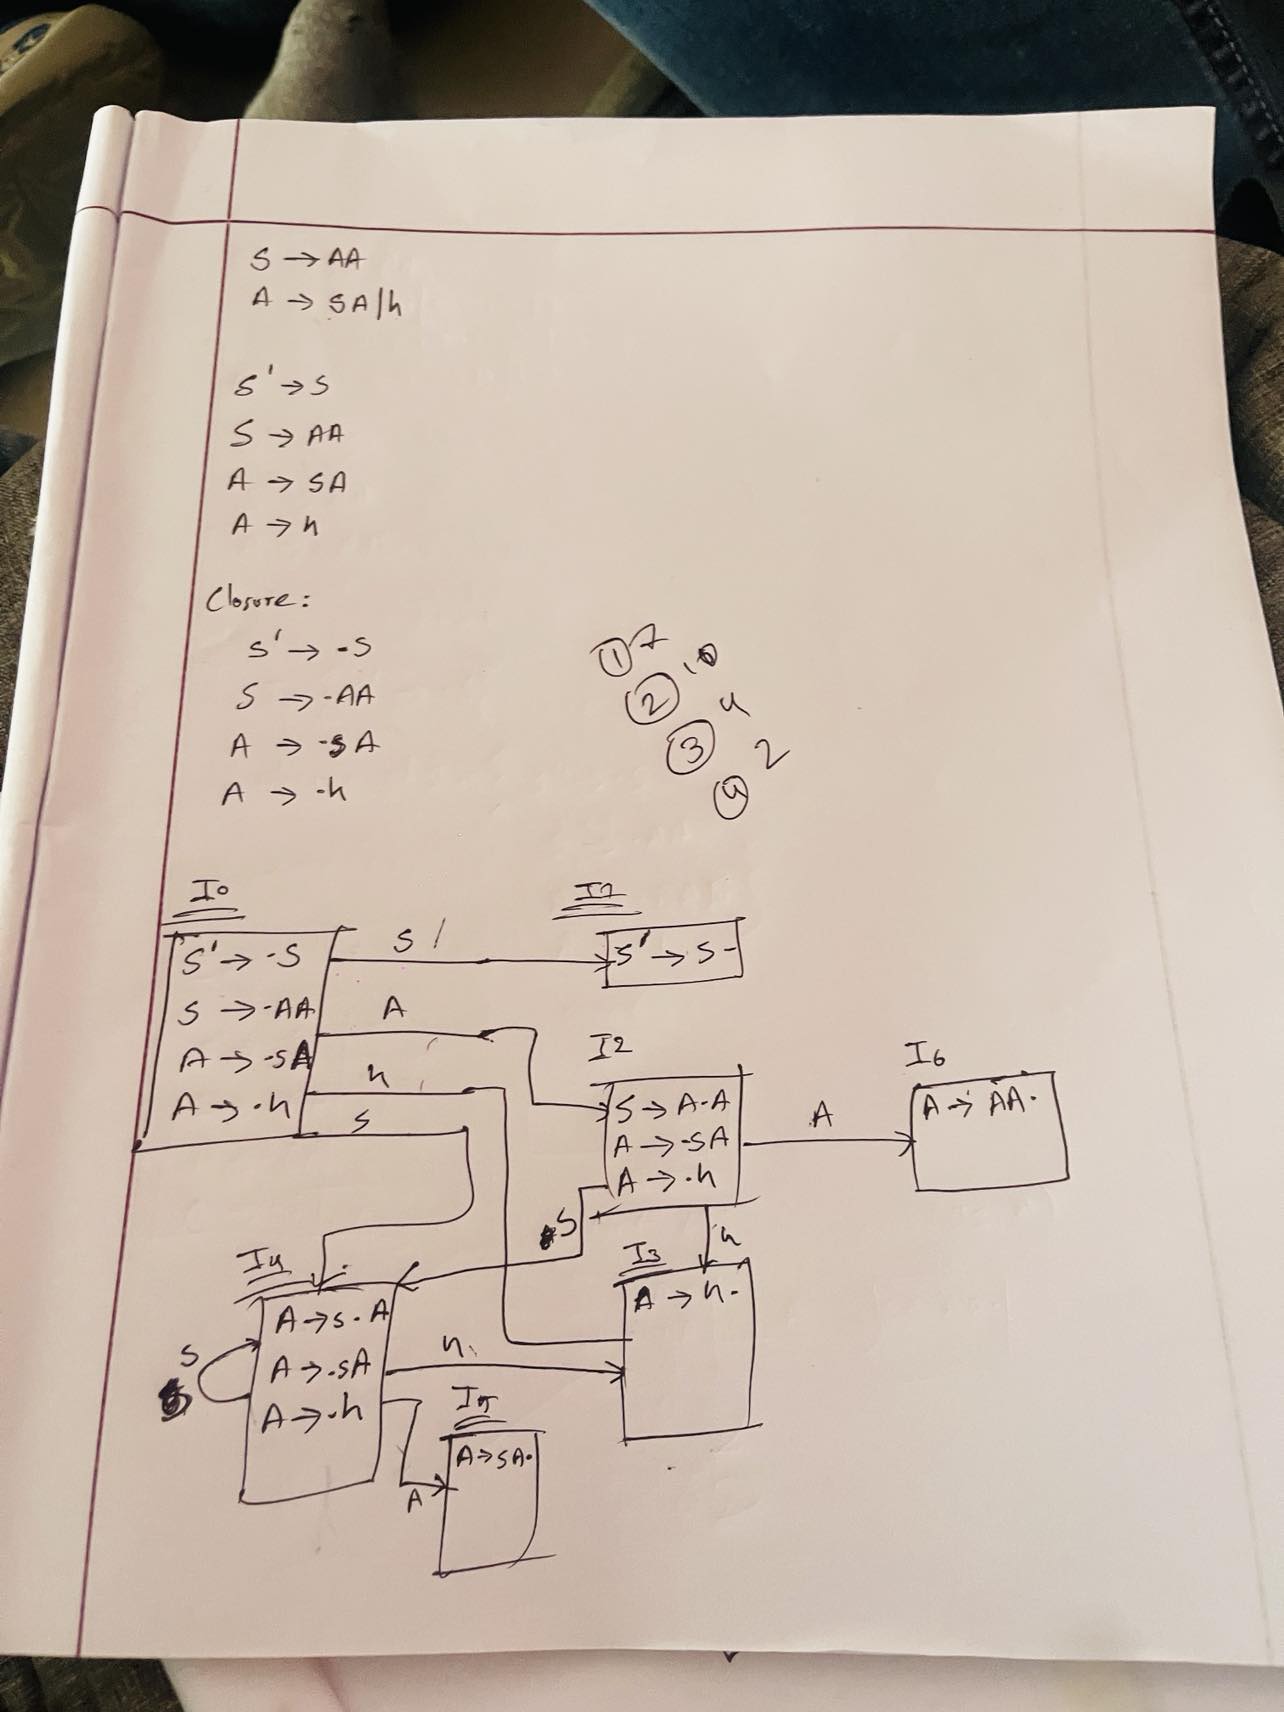 S → AA
A → SA/h
S' → S
S → AA
A → SA
A → h
Closure:
S' → .S
S → .AA
A → .sA
A → .h
① 7
②
③ 4
④ 2
I0
S' → .S
S → .AA
A → .sA
A → .h
S'
A
h
S
I1
S' → S.
I2
S → A.A
A → .sA
A → .h
A
I6
A → AA.
S
h
I3
A → h.
I4
A → s.A
A → .sA
A → .h
S
h
A
I5
A → SA.